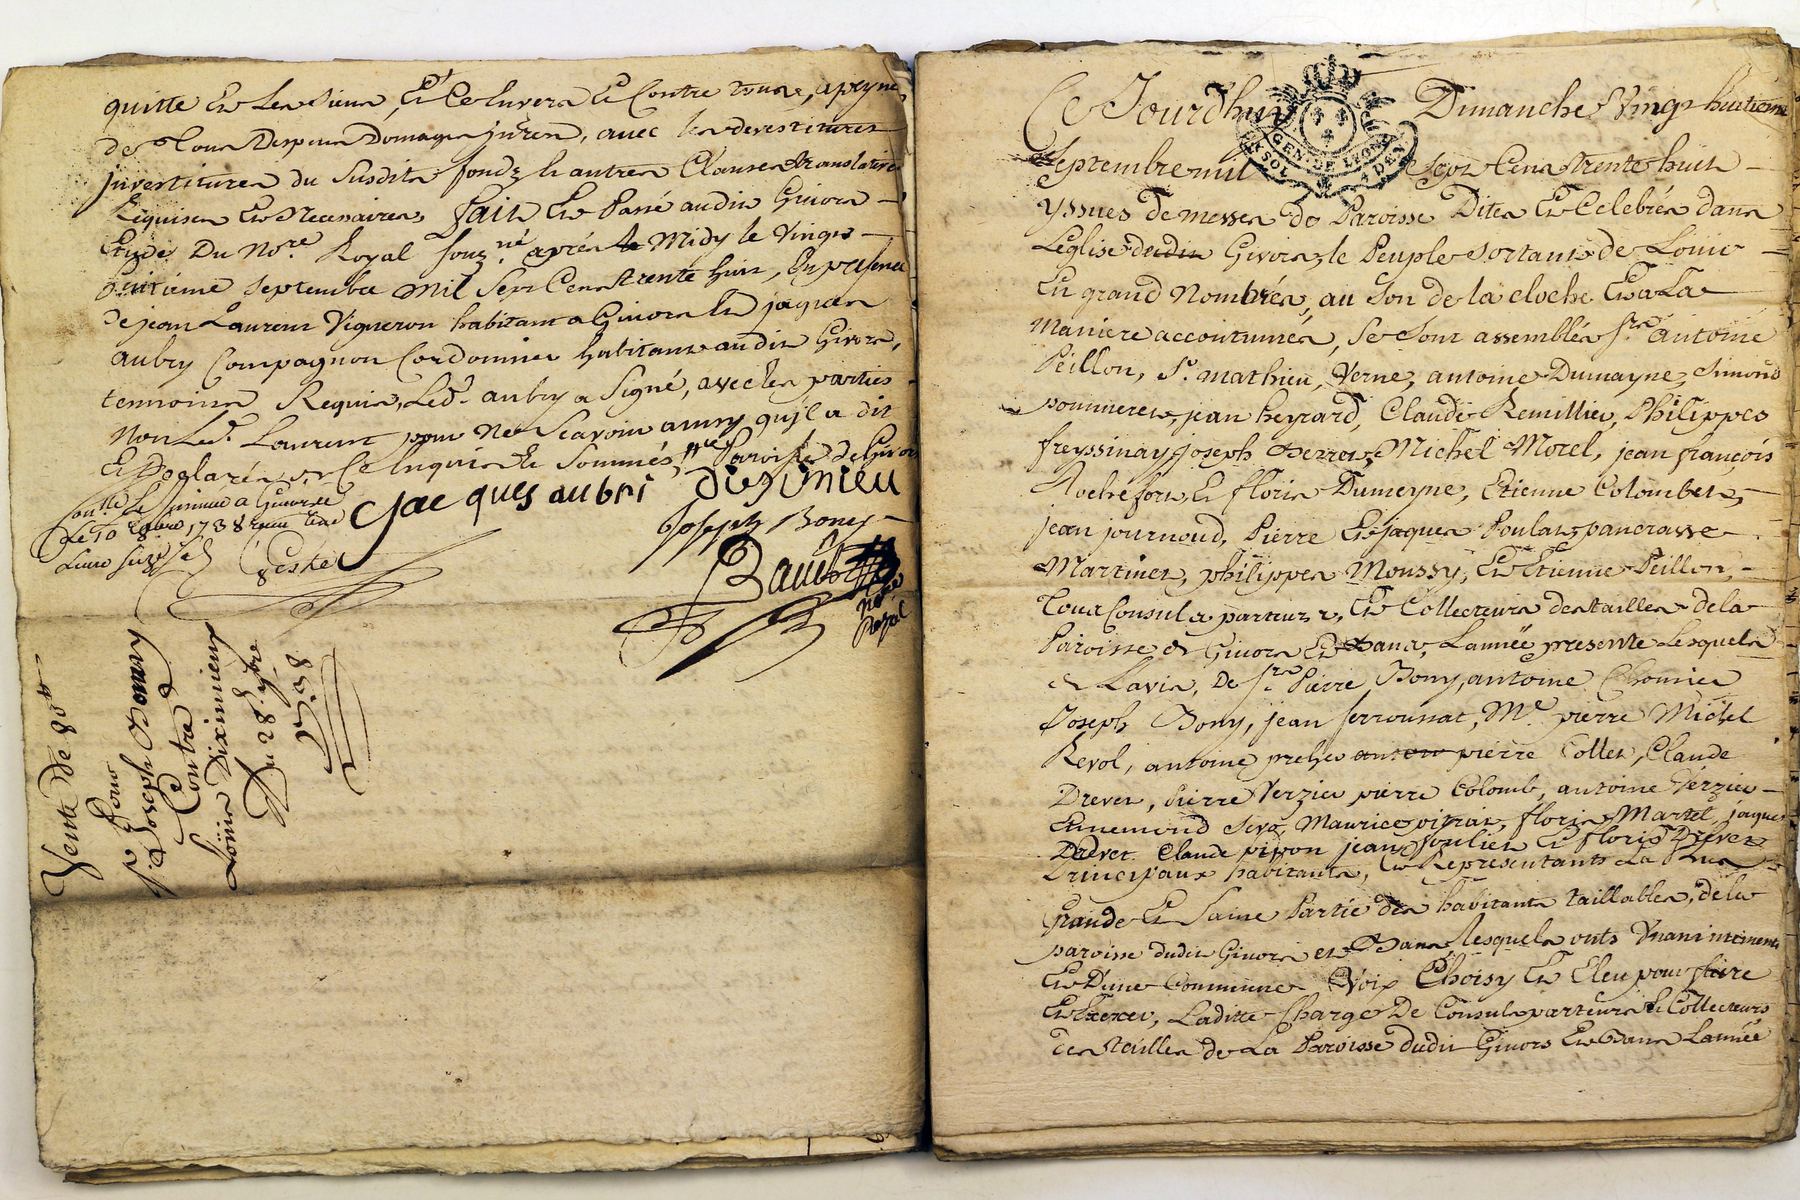 quitte Et Les Siens, Et Ce Envers Et Contre Tous, a peyne
de Tous Despens Domages jnterets, avec les devestitures
jnvestitures du Susdit fondz & autres Clauses translatives
Requises Et Necessaires, fait Et Passé audit Givors
Etude Du No.re Royal Souz.né après Midy le Vingt
huitième Septembre Mil Sept Cens trente huit, En presence
de jean Laurent Vigneron habitant a Givors Et jaques
aubry Compagnon Cordonnier habitant audit Givors,
temoins Requis, Led.t aubry a Signé, avec les parties
Non Led.t Laurent pour Ne Scavoir ainsy qu'jl a dit
Et Declaré, de Ce Enquis & Sommés, Paroisse de Givors
jacques aubri diszimieu
Joseph Bony
Con.lle Le Minuse a Givors
Le 10 8bre 1738
Livre Seize
Bauû
No.re
Royal
Vente de 80#
Pour
S.r Joseph Bonny
Contre
Loüis Diximieux
Du 28.e 7bre
1738
Ce Jourdhuy Dimanche Vingt huitieme
Septembre mil Sept Cens trente huit
yssues de messes de Paroisse Dites Et Celebrés dans
L'eglise dudit Givors, le Peuple Sortant de Louir
En grand Nombrés, au Son de la cloche Et a La
Maniere accoutumés, Se Sont assemblés S.r antoine
Peillon, S.r mathieu Verne, antoine Dumayne, Simond
pommeret, jean heyrard, Claude Remillieu, Philippes
freyssinay, joseph Perret, Michel Morel, jean françois
Rochefort, & floris Dumeyne, Etienne Colombet,
jean journoud, Pierre Et jaques Poulat, pancrasse
Martinet, philippes Moussy, Et Etienne Peillon,
Tous Consuls parteurs, Et Collecteurs des tailles de la
Paroisse de Givors Et Bans, L'année presente Lesquels
de L'avis, De S.r Pierre Bony, antoine Chomier
Joseph Bony, jean ferroussat, M.e pierre Michel
Revol, antoine pierre Collet, Claude
Drevet, Pierre Verzieu pierre Colomb, antoine Verzieu
Ennemond Maurice floris Martel, jaques
Drevet Claude pipon jean Soulier & floris Drevet
Principaux habitants, Et Representants La Plus
Grande Et Saine Partie des habitants taillables, de la
paroisse dudit Givors et Bans Lesquels onts Unanimement
Et D'une Commune Voix Choisy Et Eleu pour faire
Et Exercer, Laditte Charge De Consuls parteurs & Collecteurs
des tailles de La Paroisse dudit Givors Et Bans L'année